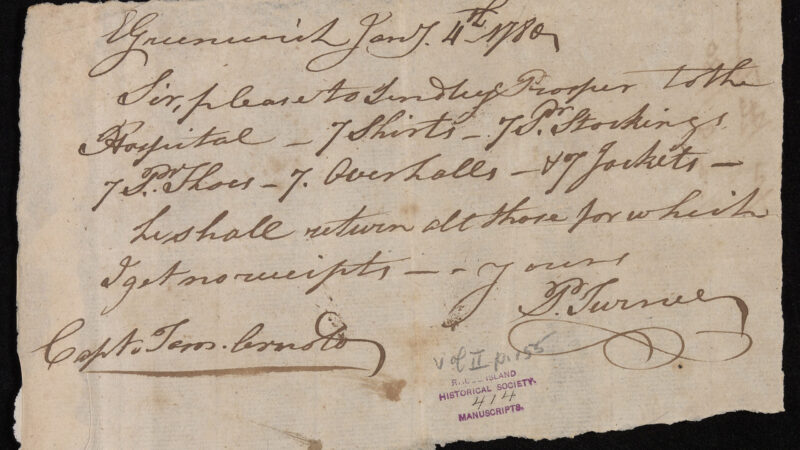 E Greenwich Jany. 4th 1780
Sir, please to send by Prosper to the
Hospital – 7 Shirts – 7 Pr. Stockings
7 Pr. Shoes – 7. Overhalls – & 7 Jackets –
he shall return all those for which
I get no receipts – – yours
P. Turner
Capt. Arnold
Vol II p. 155
RHODE ISLAND
HISTORICAL SOCIETY.
414
MANUSCRIPTS.